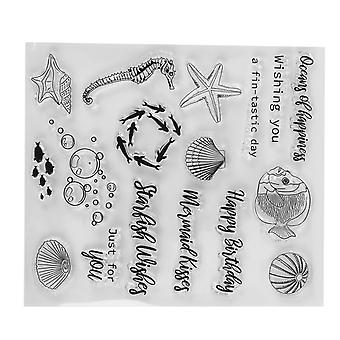 Oceans of happiness
Wishing you
a fin-tastic day
Happy Birthday
Mermaid Kisses
Starfish Wishes
Just for
you